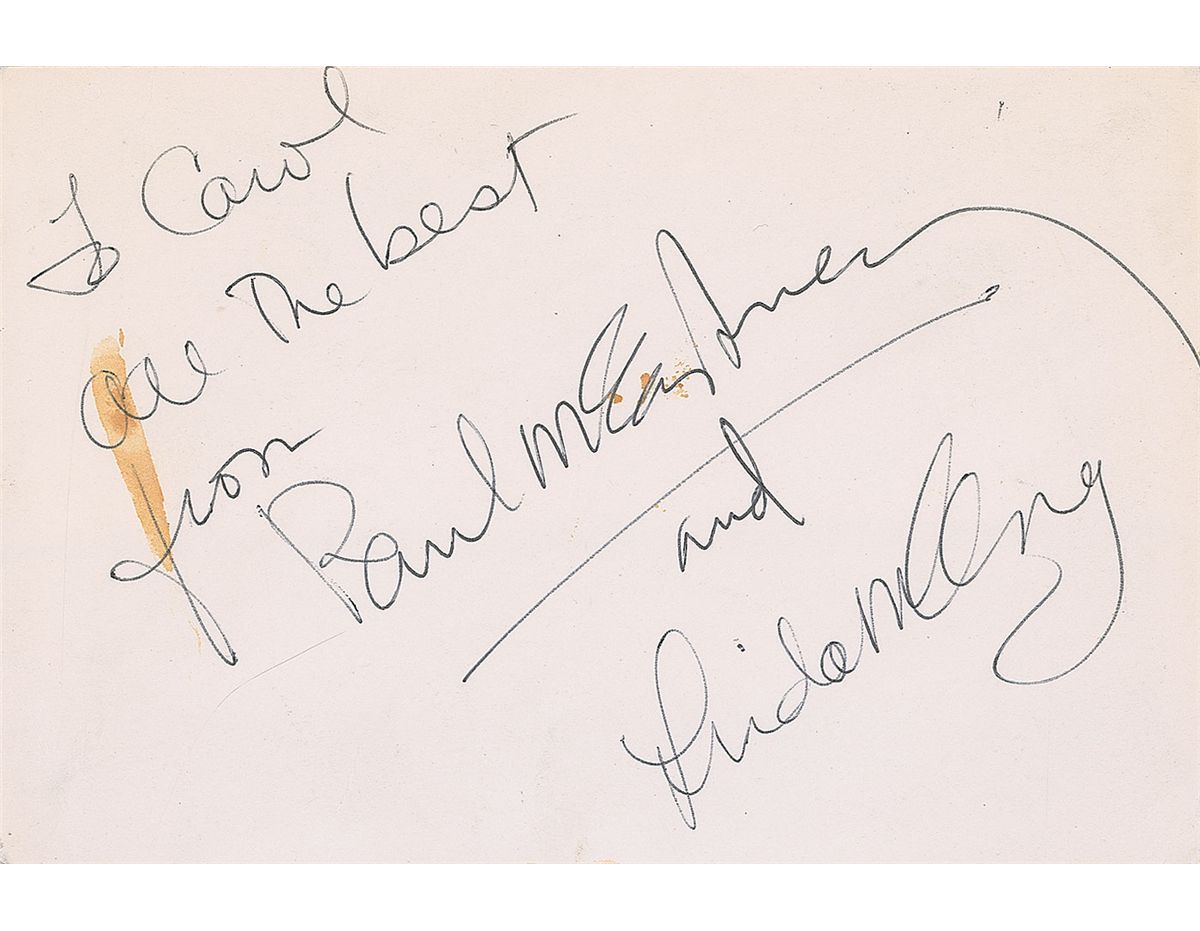 To Carol
all the best
from
Paul McCartney
and
Linda McCartney